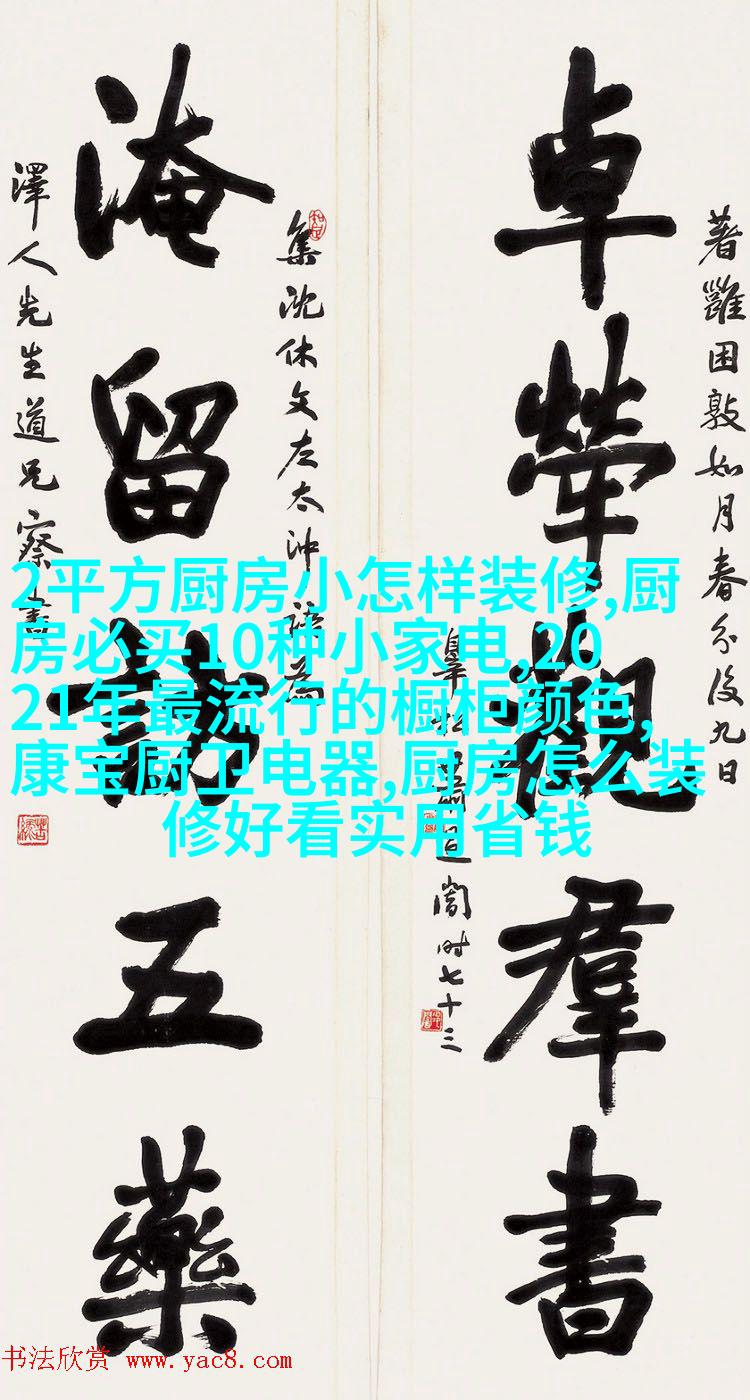 著雝困敦如月春分後九日
卓犖觀羣書
時七十三
集沈休文左太沖
淹留訪五藥
澤人先生道兄察書
2平方厨房小怎样装修,厨
房必买10种小家电,20
21年最流行的橱柜颜色,
康宝厨卫电器,厨房怎么装
修好看实用省钱
书法欣赏 www.yac8.com